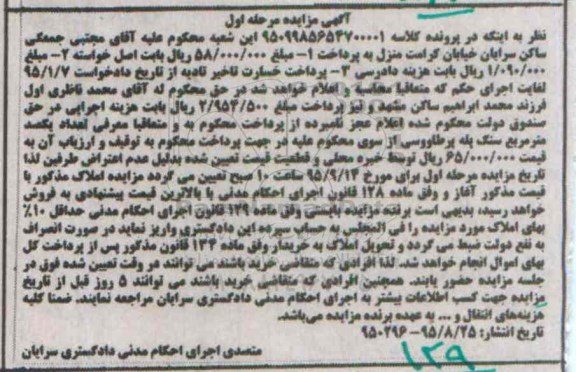 آگهی مزایده مرحله اول
نظر به اینکه در پرونده کلاسه ۹۵۰۹۹۸۵۶۵۴۷۰۰۰۰۱ این شعبه محکوم علیه آقای مجتبی جمعگی
ساکن سرایان خیابان کرامت منزل به پرداخت ۱- مبلغ ۵۸/۰۰۰/۰۰۰ ریال بابت اصل خواسته ۲- مبلغ
۱/۰۹۰/۰۰۰ ریال بابت هزینه دادرسی ۳- پرداخت خسارت تاخیر تادیه از تاریخ دادخواست ۹۵/۱/۷
لغایت اجرای حکم که متعاقبا محاسبه و اعلام خواهد شد در حق محکوم له آقای محمد ناظری اول
فرزند محمد ابراهیم ساکن مشهد و نیز پرداخت مبلغ ۲/۹۵۴/۵۰۰ ریال بابت هزینه اجرایی در حق
صندوق دولت محکوم شده اعلام عجز نامبرده از پرداخت محکوم به و متعاقبا معرفی تعداد یکصد
مترمربع سنگ پله پرطاووسی از سوی محکوم علیه در جهت پرداخت محکوم به توقیف و ارزیاب آن به
قیمت ۶۵/۰۰۰/۰۰۰ ریال توسط خبره محلی و قطعیت قیمت تعیین شده بدلیل عدم اعتراض طرفین لذا
تاریخ مزایده مرحله اول برای مورخ ۹۵/۹/۱۴ ساعت ۱۰ صبح تعیین می گردد مزایده املاک مذکور با
قیمت مذکور آغاز و وفق ماده ۱۲۸ قانون اجرای احکام مدنی با بالاترین قیمت پیشنهادی به فروش
خواهد رسید، بدیهی است برنده مزایده بایستی وفق ماده ۱۲۹ قانون اجرای احکام مدنی حداقل ۱۰٪
بهای املاک مورد مزایده را فی المجلس به حساب سپرده این دادگستری واریز نماید در صورت انصراف
به نفع دولت ضبط می گردد و تحویل املاک به خریدار وفق ماده ۱۳۴ قانون مذکور پس از پرداخت کل
بهای اموال انجام خواهد شد. لذا افرادی که متقاضی خرید باشند می توانند در وقت تعیین شده فوق در
جلسه مزایده حضور یابند. همچنین افرادی که متقاضی خرید باشند می توانند ۵ روز قبل از تاریخ
مزایده جهت کسب اطلاعات بیشتر به اجرای احکام مدنی دادگستری سرایان مراجعه نمایند. ضمنا کلیه
هزینه‌های انتقال و ... به عهده برنده مزایده می‌باشد.
تاریخ انتشار: ۹۵/۸/۲۵-۹۵۰۲۹۶
متصدی اجرای احکام مدنی دادگستری سرایان
۱۲۹